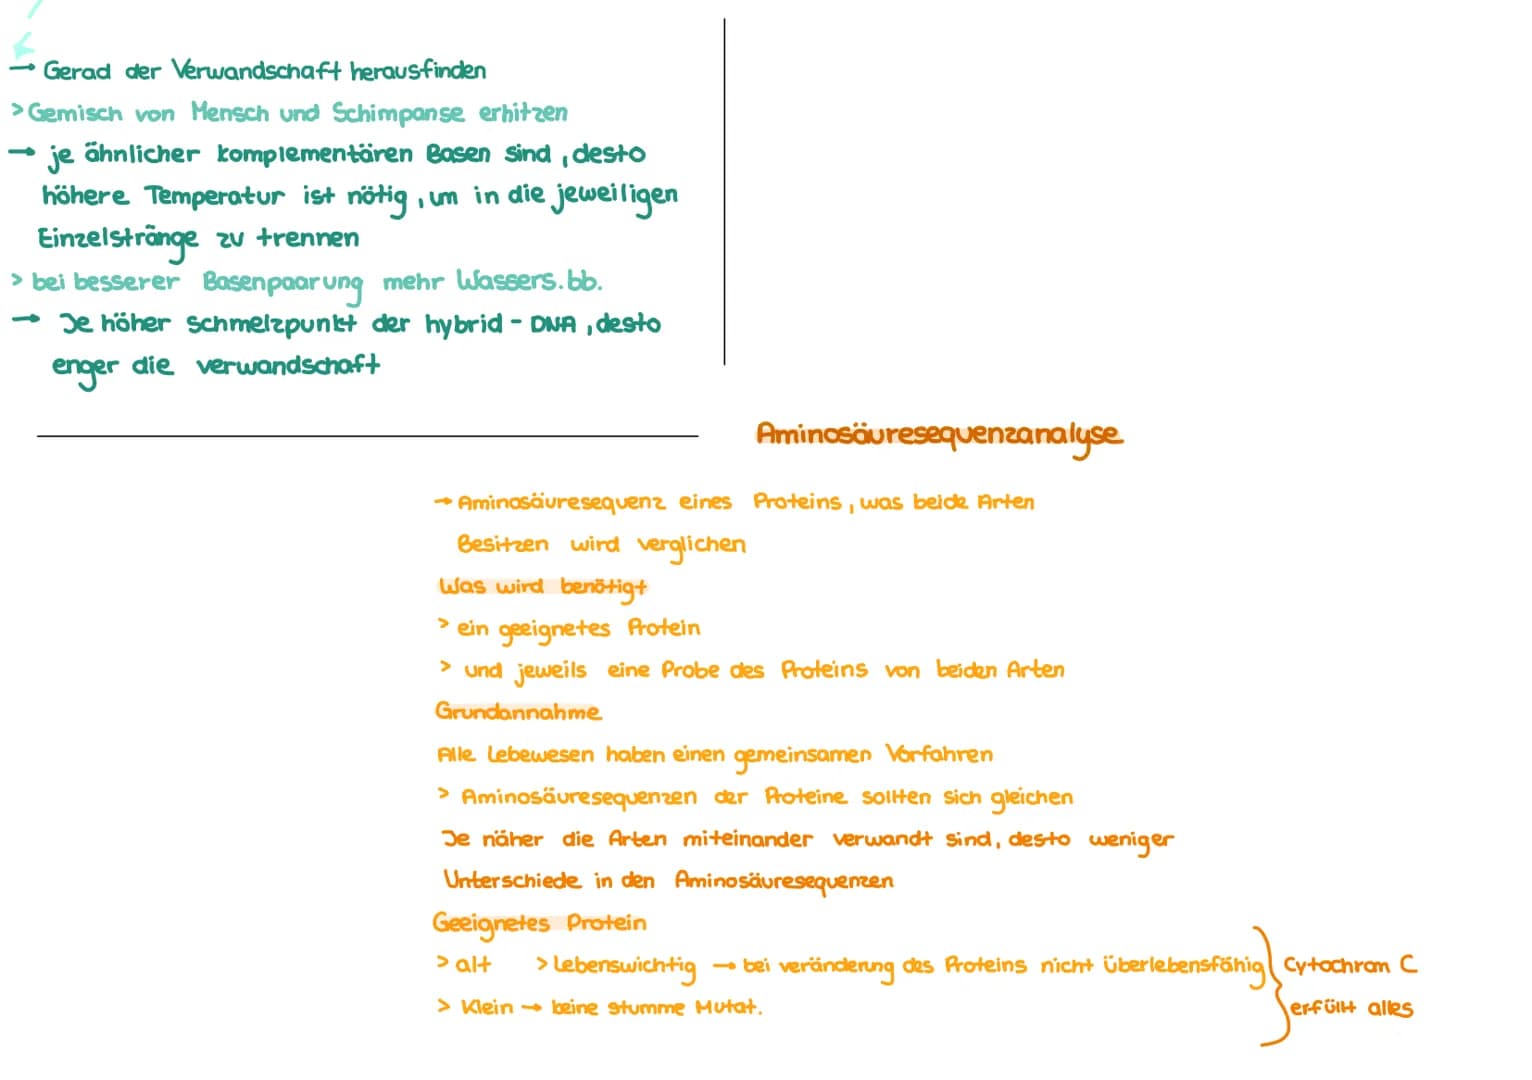 → Gerad der Verwandschaft herausfinden
> Gemisch von Mensch und Schimpanse erhitzen
→ je ähnlicher komplementären Basen sind, desto
höhere Temperatur ist nötig, um in die jeweiligen
Einzelstränge zu trennen
> bei besserer Basenpaarung mehr Wassers.bb.
→ Je höher schmelzpunkt der hybrid-DNA, desto
enger die verwandschaft
Aminosäuresequenzanalyse
→ Aminosäuresequenz eines Proteins, was beide Arten
Besitzen wird verglichen
Was wird benötigt
> ein geeignetes Protein
> und jeweils eine Probe des Proteins von beiden Arten
Grundannahme
Alle Lebewesen haben einen gemeinsamen Vorfahren
> Aminosäuresequenzen der Proteine sollten sich gleichen
Je näher die Arten miteinander verwandt sind, desto weniger
Unterschiede in den Aminosäuresequenzen
Geeignetes Protein
> alt > Lebenswichtig → bei veränderung des Proteins nicht überlebensfähig
> Klein → keine stumme Mutat.
Cytochrom C
erfüllt alles